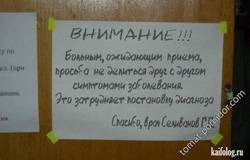 ВНИМАНИЕ!!!
Больным, ожидающим приема,
просьба не делиться друг с другом
симптомами заболевания.
Это затрудняет постановку диагноза
Спасибо, врач Селиванов
kaifolog.ru